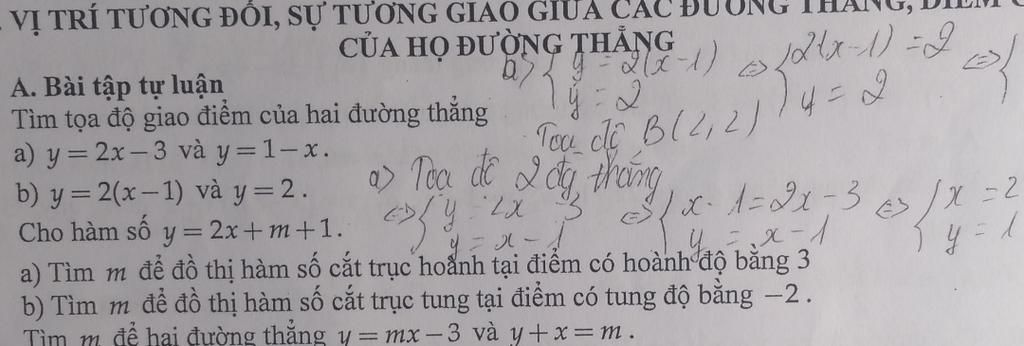 VỊ TRÍ TƯƠNG ĐỐI, SỰ TƯƠNG GIAO GIỮA CÁC ĐƯỜNG THẲNG, ĐIỂM
CỦA HỌ ĐƯỜNG THẲNG
b) { y = 2(x-1) ⇔ { 2(x-1) = 2 ⇔ {
y = 2 y = 2
A. Bài tập tự luận
Tìm tọa độ giao điểm của hai đường thẳng
Tọa độ B(2,2)
a) y = 2x − 3 và y = 1 − x.
a) Tọa độ 2 đg thẳng
b) y = 2(x − 1) và y = 2.
⇔ { y = 2x - 3 ⇔ { x - 1 = 2x - 3 ⇔ { x = 2
y = x - 1 y = x - 1 y = 1
Cho hàm số y = 2x + m + 1.
a) Tìm m để đồ thị hàm số cắt trục hoành tại điểm có hoành độ bằng 3
b) Tìm m để đồ thị hàm số cắt trục tung tại điểm có tung độ bằng −2.
Tìm m để hai đường thẳng y = mx − 3 và y + x = m.